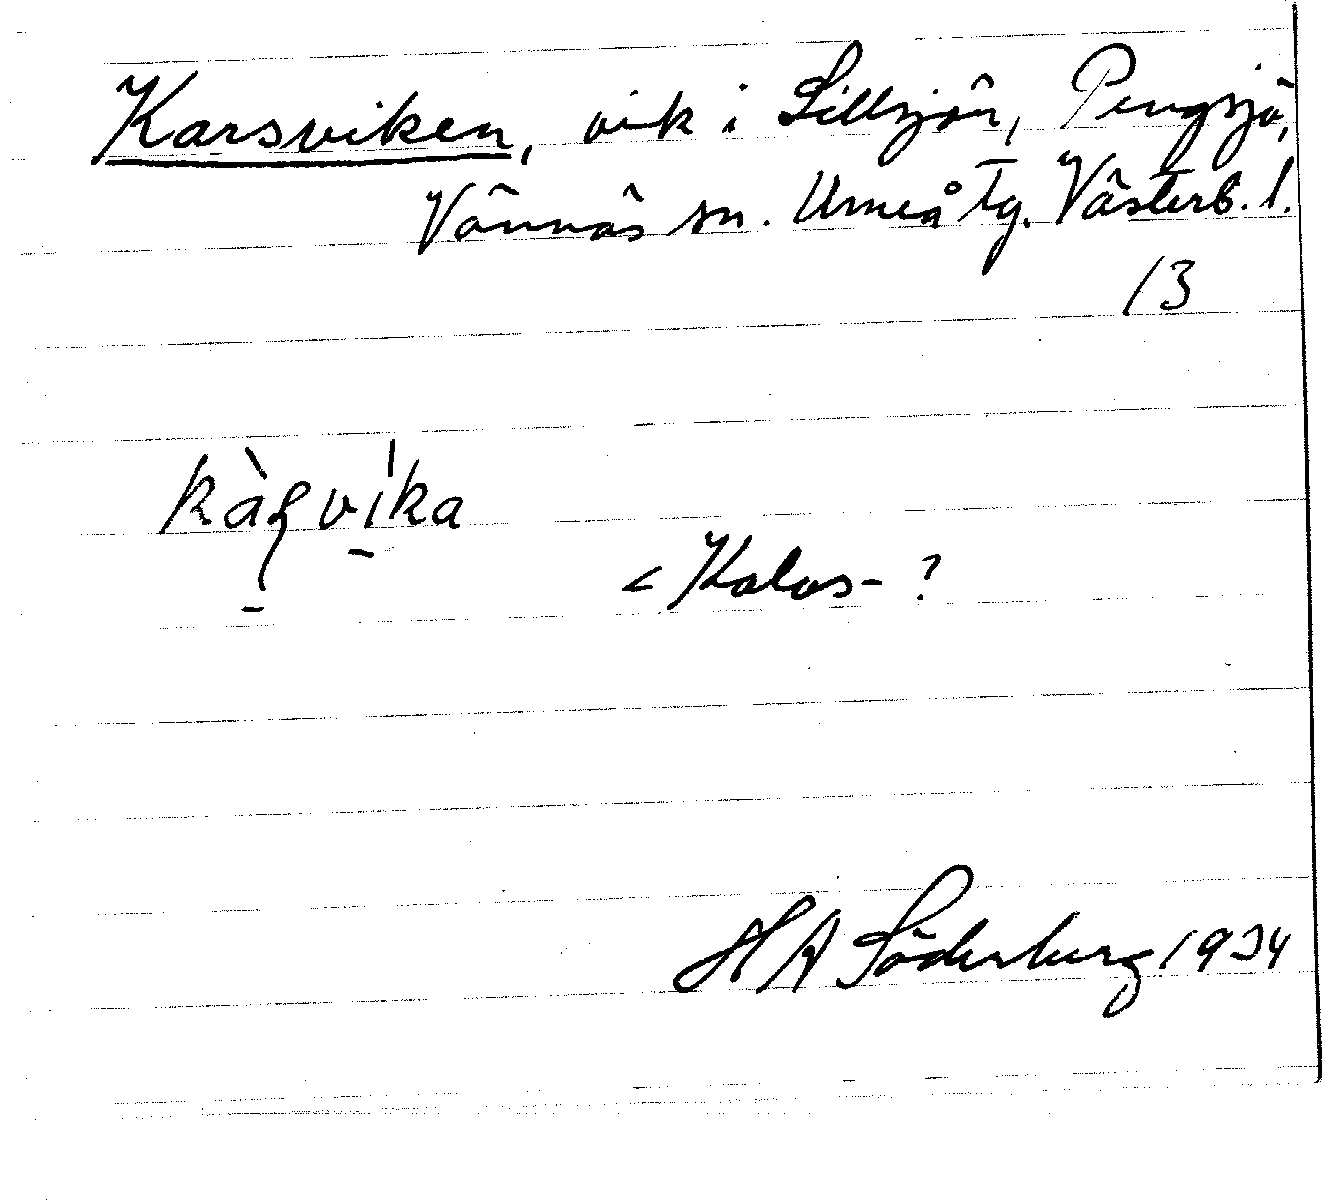 Karsviken, vik i Lillsjön, Pengsjö,
Vännäs sn. Umeå tg. Västerb. l.
13
< Kalas- ?
H A Söderberg 1934